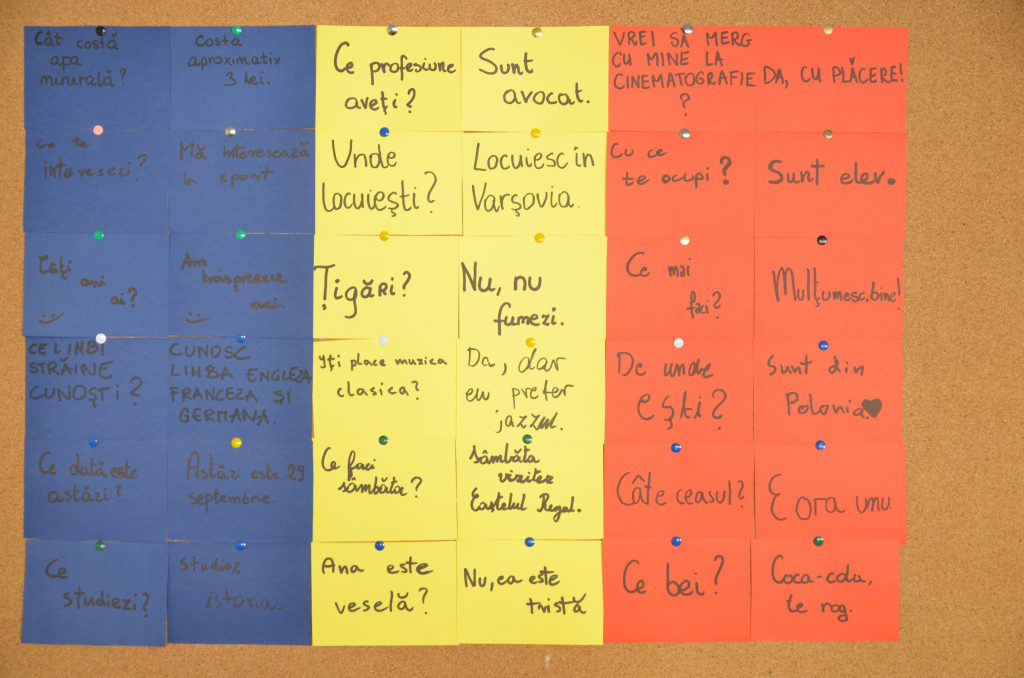 Cât costă
apa
minerală?
Costă
aproximativ
3 lei.
Ce profesiune
aveți?
Sunt
avocat.
VREI SĂ MERG
CU MINE LA
CINEMATOGRAFIE
?
DA, CU PLĂCERE!
Ce te
interesezi?
Mă interesează
la sport
Unde
locuiești?
Locuiesc în
Varșovia.
Cu ce
te ocupi?
Sunt elev.
ani
ai?
Am
treisprezece
Țigări?
Nu, nu
fumezi.
Ce mai
faci?
Mulțumesc, bine!
CE LIMBI
STRĂINE
CUNOȘTI?
CUNOSC
LIMBA ENGLEZA
FRANCEZA ȘI
GERMANA.
Iți place muzica
clasica?
Da, dar
eu prefer
jazzul.
De unde
ești?
Sunt din
Polonia
Ce dată este
astăzi?
Astăzi este 29
septembrie.
Ce faci
sâmbăta?
Sâmbăta
vizitez
Castelul Regal.
Câte ceasul?
E ora unu.
Ce
studiezi?
studiez
istoria.
Ana este
veselă?
Nu, ea este
tristă
Ce bei?
Coca-cola,
te rog.